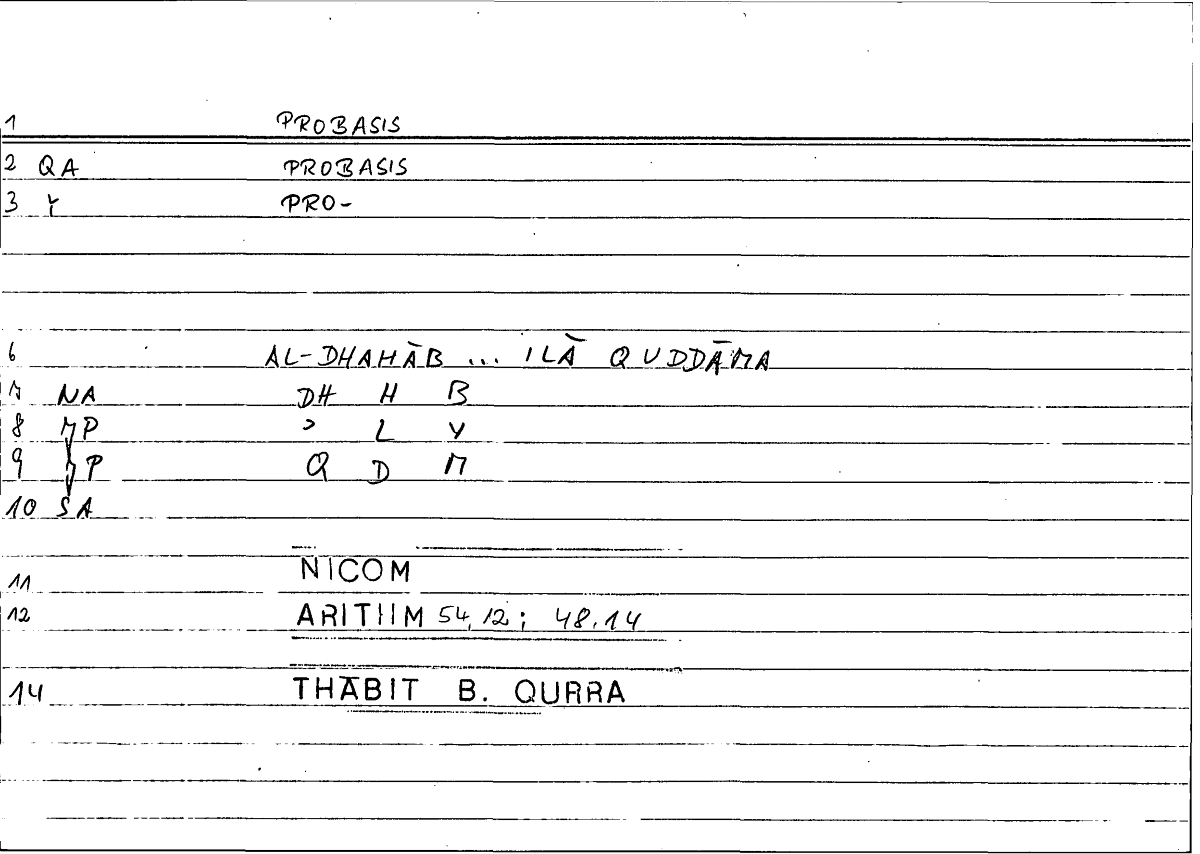 1 PROBASIS
2 QA PROBASIS
3 Y PRO-
6 AL-DHAHĀB ... ILĀ QUDDĀMA
7 NA DH H B
8 MP ʾ L Y
9 MP Q D M
10 SA
11 NICOM
12 ARITHM 54,12; 48.14
14 THĀBIT B. QURRA